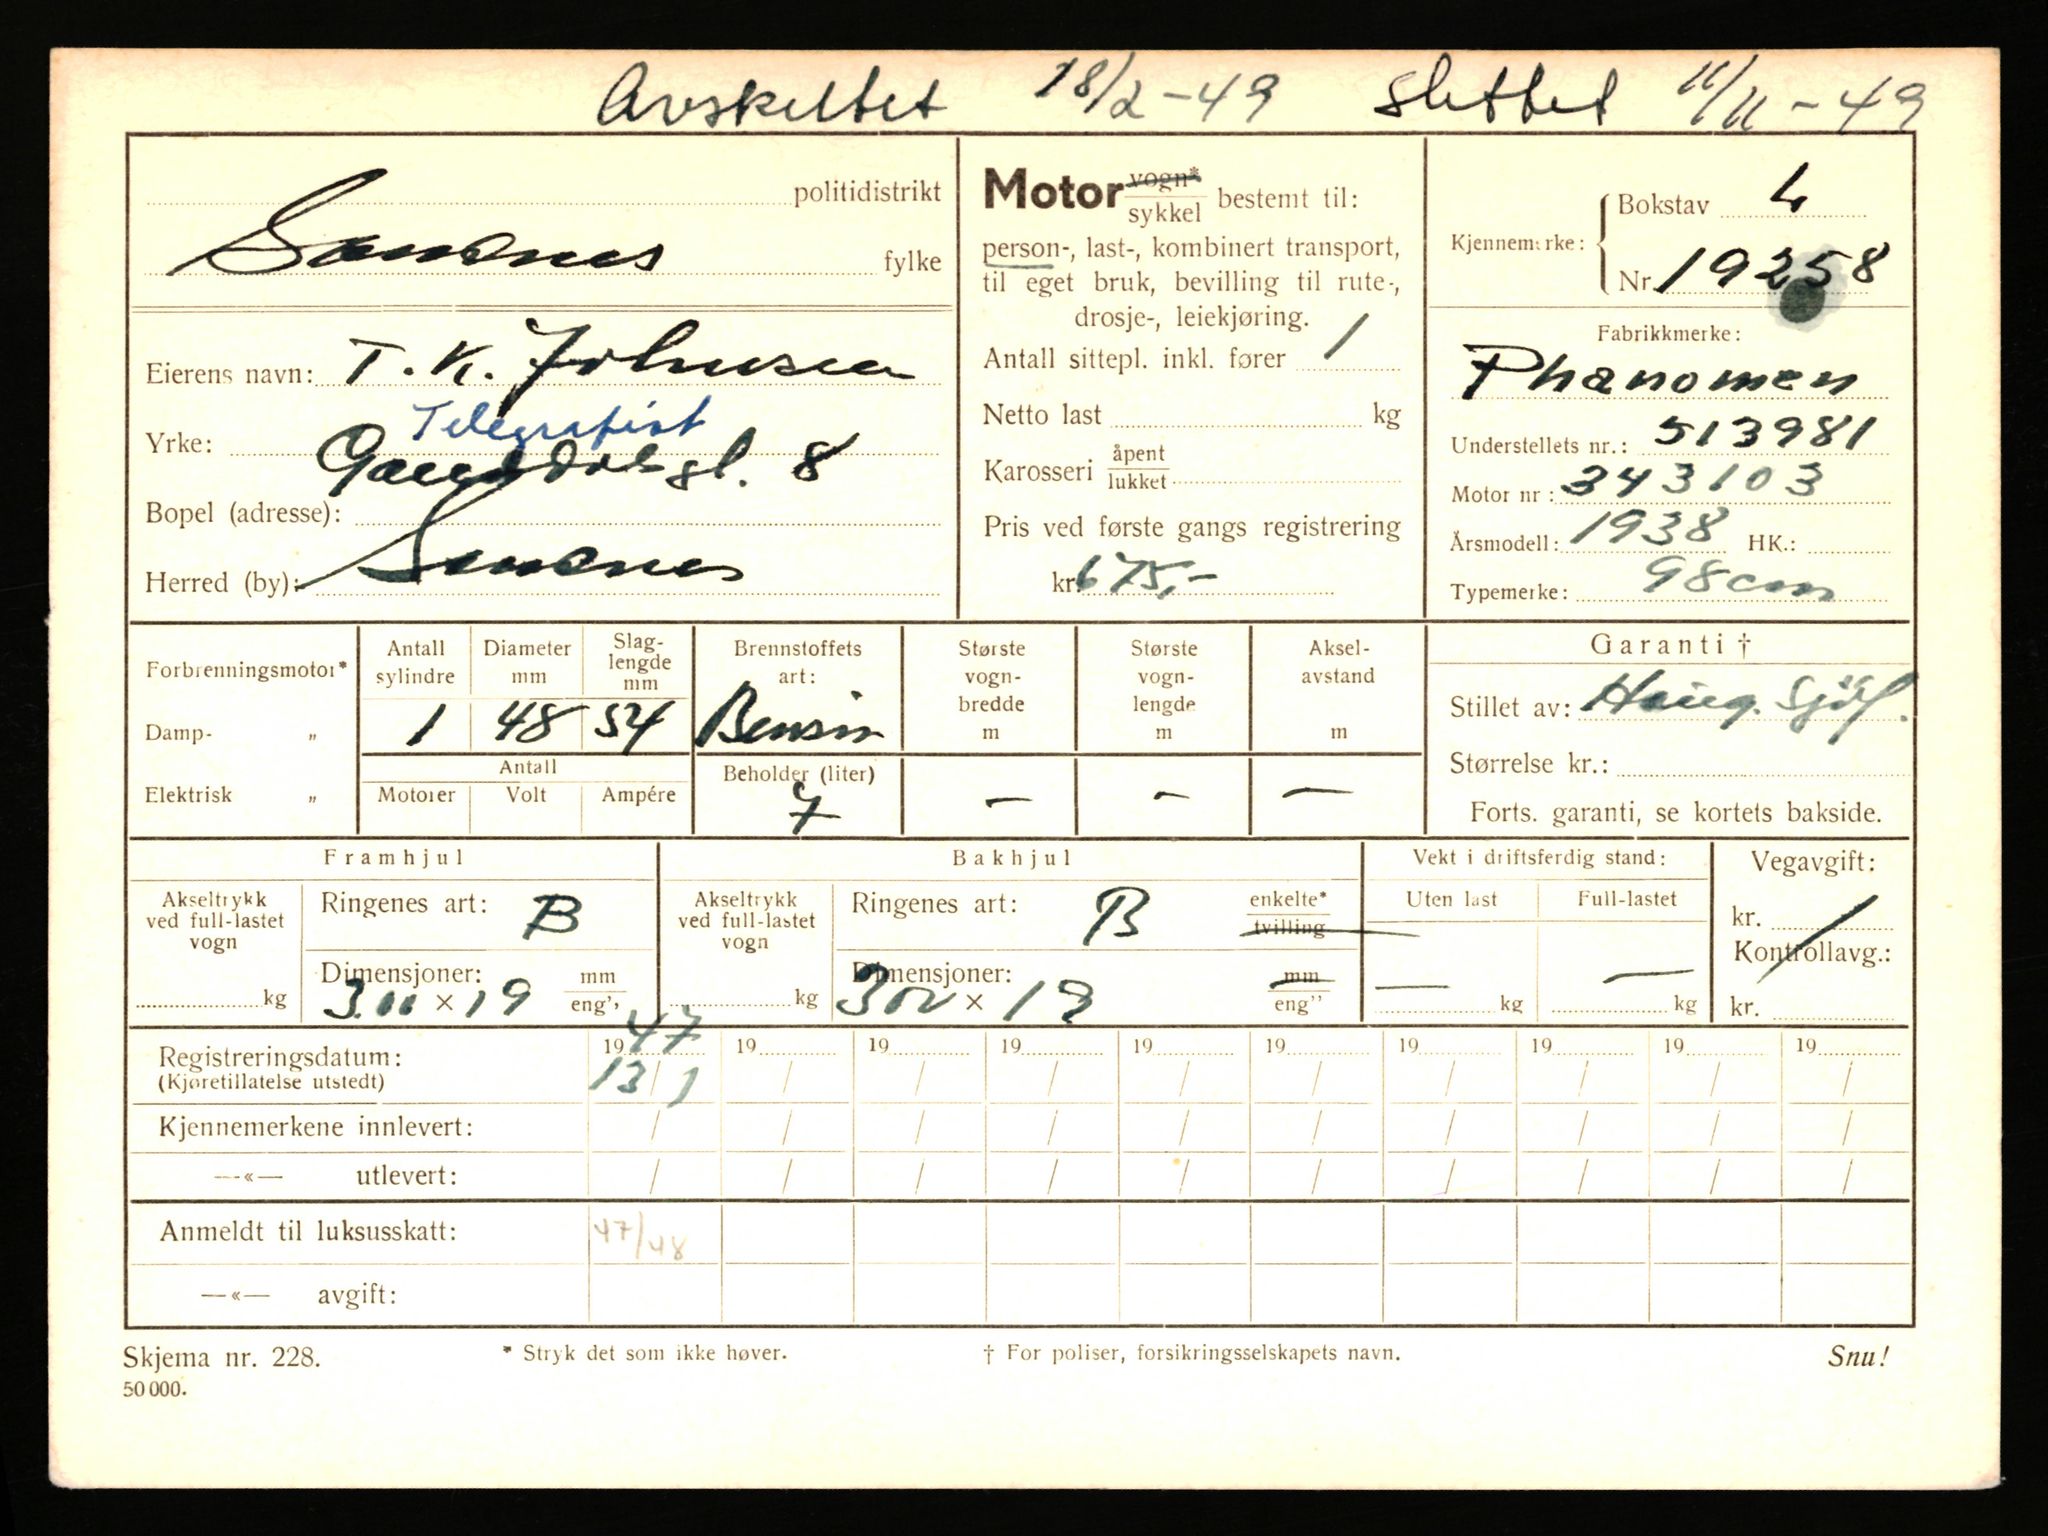 Avskiltet 18/2-49 slettet 11/11-49
politidistrikt
Sandnes fylke
Eierens navn: T. K. Johnsen
Telegrafist
Yrke:
gt. 8
Bopel (adresse):
Herred (by): Sandnes
Motor vogn*
sykkel bestemt til:
person-, last-, kombinert transport,
til eget bruk, bevilling til rute-,
drosje-, leiekjøring.
Antall sittepl. inkl. fører 1
Netto last kg
Karosseri åpent
lukket
Pris ved første gangs registrering
kr. 675,-
Kjennemerke: Bokstav L
Nr. 19258
Fabrikkmerke:
Phanomen
Understellets nr.: 513981
Motor nr: 343103
Årsmodell: 1938 HK.:
Typemerke: 98 cm
Forbrenningsmotor*
Damp- „
Elektrisk „
Antall sylindre 1
Diameter mm 48
Slaglengde mm 54
Antall
Motorer Volt Ampére
Brennstoffets art: Bensin
Beholder (liter) 7
Største vognbredde m —
Største vognlengde m —
Akselavstand m —
Garanti †
Stillet av: Haug. Sjöf.
Størrelse kr.:
Forts. garanti, se kortets bakside.
Framhjul
Akseltrykk ved full-lastet vogn kg
Ringenes art: B
Dimensjoner: mm
3.00 × 19 eng''
Bakhjul
Akseltrykk ved full-lastet vogn kg
Ringenes art: B enkelte*
tvilling
Dimensjoner: mm
300 × 19 eng''
Vekt i driftsferdig stand:
Uten last Full-lastet
— kg — kg
Vegavgift:
kr.
Kontrollavg.:
kr.
Registreringsdatum: 1947 19 19 19 19 19 19 19 19 19
(Kjøretillatelse utstedt) 13/1 / / / / / / / / /
Kjennemerkene innlevert: / / / / / / / / / /
—«— utlevert: / / / / / / / / / /
Anmeldt til luksusskatt: 47/48
—«— avgift:
Skjema nr. 228. * Stryk det som ikke høver. † For poliser, forsikringsselskapets navn. Snu!
50 000.